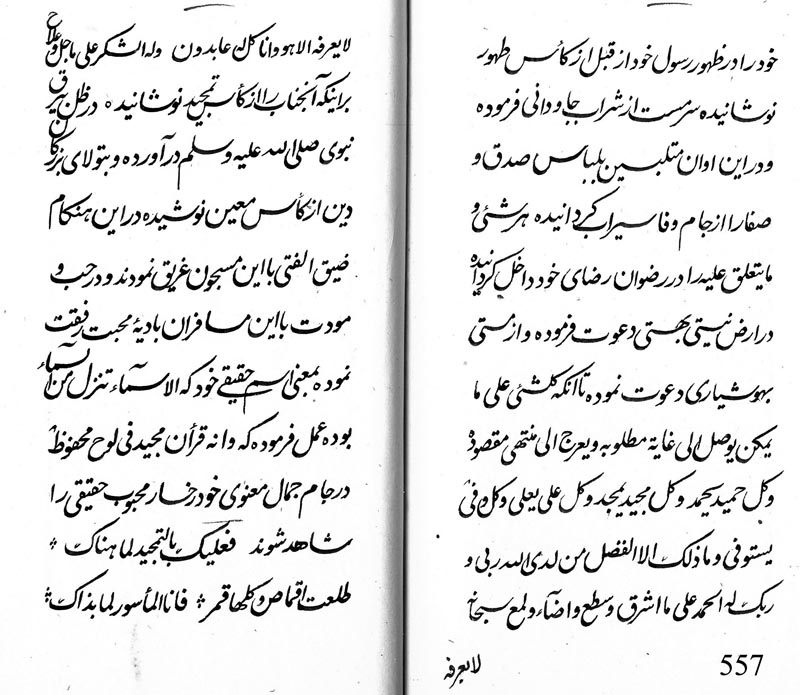 خود را در ظهور رسول خود از قبل از کأس طهور
نوشانیده سرمست از شراب جاودانی فرموده
و در این اوان متلبسین بلباس صدق و
صفا را از جام وفا سیراب کردانیده هر شئی و
ما یتعلق علیه را در رضوان رضای خود داخل کردانیده
در ارض نیستی بهستی دعوت فرموده و از مستی
بهوشیاری دعوت نموده تا انکه کلشئی علی ما
یمکن یوصل الی غایة مطلوبه و یعرج الی منتهی مقصوده
و کل حمید یحمد و کل مجید یمجد و کل علی یعلی و کل وفی
یستوفی و ما ذلک الا الفضل من لدی الله ربی و
ربک له الحمد علی ما اشرق و سطع و اضآء و لمع سبحانه
لا یعرفه
557
لا یعرفه الا هو و انا کل له عابدون وله الشکر علی ما جل و علا ح
براینکه آنجناب را از کأس تمجید نوشانیده در ظل بیرق
نبوی صلی الله علیه و سلم در آورده و بتولای بزرکان
دین از کأس معین نوشیده در این هنکام
ضیق الفتی با این مسجون غریق نمودند و در حب و
مودت با این مسافران بادیهٔ محبت رفقت
نموده بمعنی اسم حقیقی خود که الاسمآء تنزل من السمآء
بوده عمل فرموده که و انه قرأن مجید فی لوح محفوظ
در جام جمال معنوی خود رخسار محبوب حقیقی را
شاهد شوند فعلیک بالتمجید لما هناک
طلعت اقماص و کلها قمر فانا المأسور لما بذاک